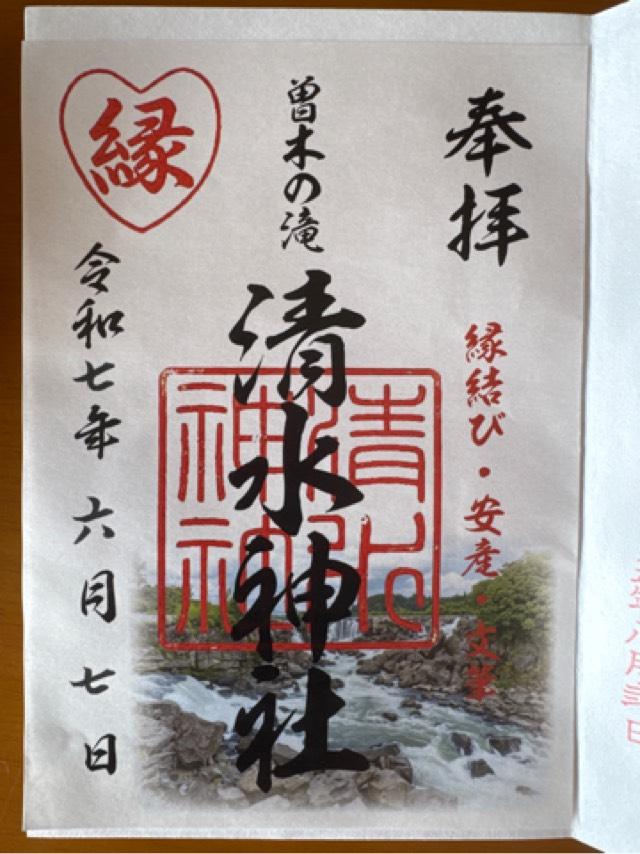 奉拝
縁結び・安産・文筆
曽木の滝
清水神社
清水神社
縁
令和七年 六月 七日